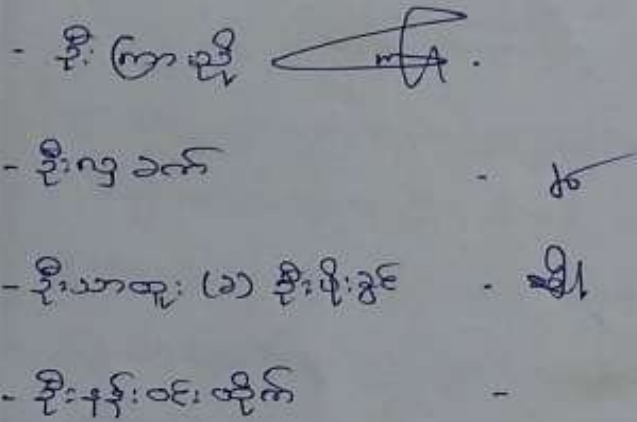 - ဦးကြာညို
- ဦးလှခက် -
- ဦးသာထူး (ခ) ဦးဖိုးခွင် -
- ဦးနန်းဝင်းထိုက် -